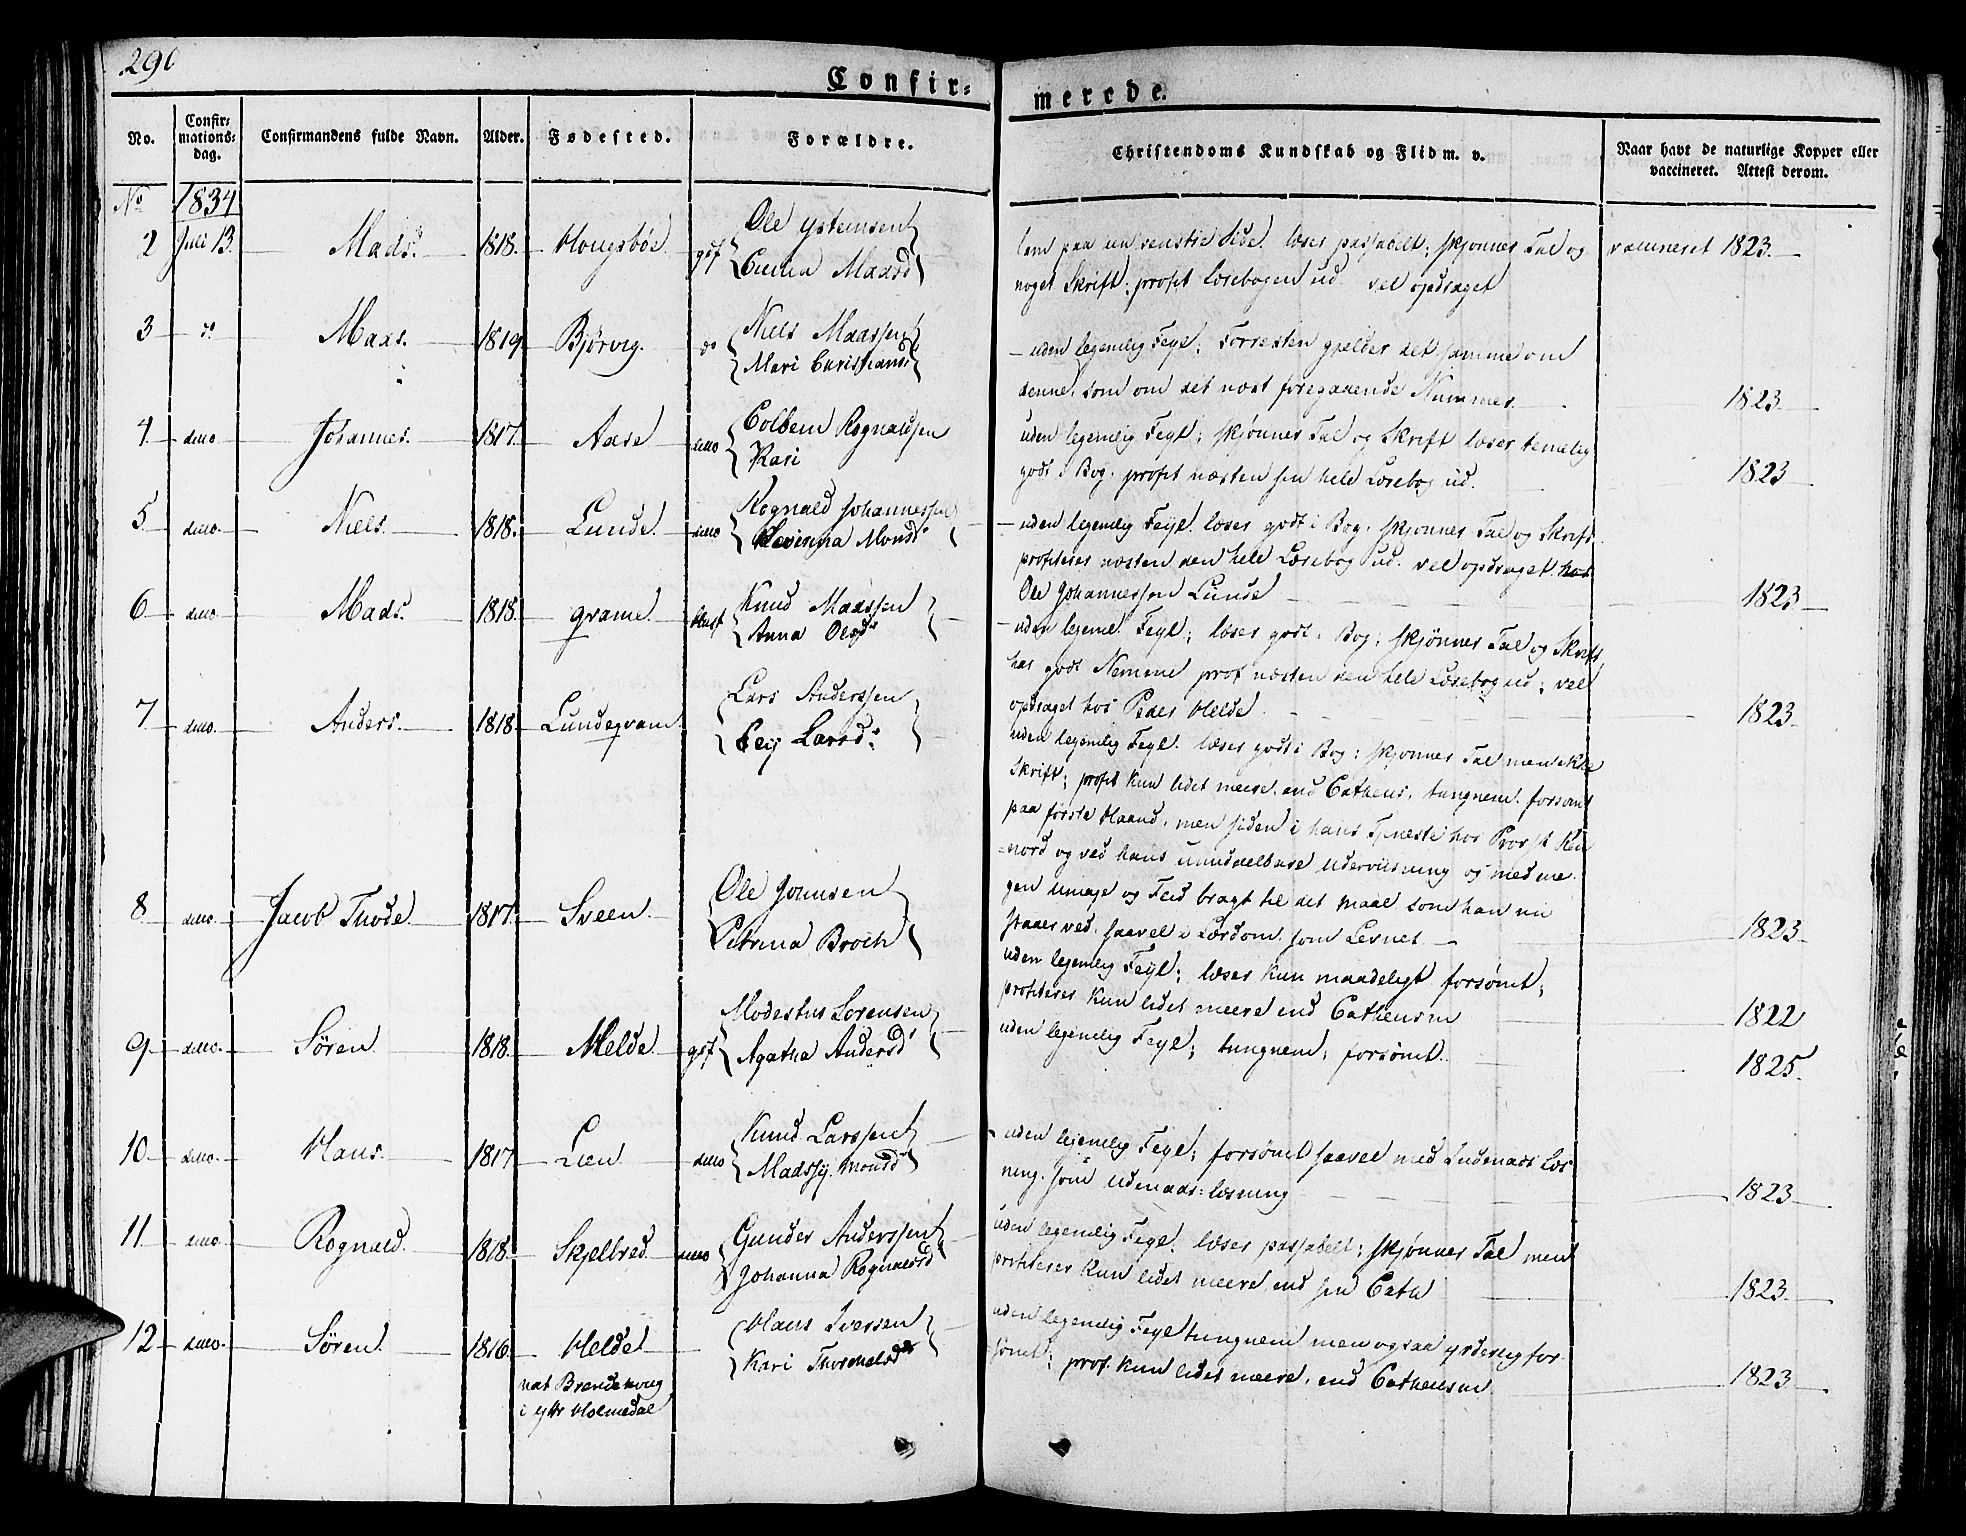 290
Confir=
merede.
No.
Confir-
mations-
dag.
Confirmandens fulde Navn.
Alder.
Fødested.
Forældre.
Christendoms Kundskab og Flid m. v.
Naar havt de naturlige Kopper eller
vaccineret. Attest derom.
No 1834
2 Juli 13. Mads. 1818. Hougsbøe gdf Ole Ysteinsen
Maasd
lam paa en venstre Side. læser passabelt; skjønner Tal og
noget Skrift; profit Læsebogen ud vel opdraget
vaccineret 1823.
3 do Maas. 1819. Bjørvig. do Niels Maassen
Mari Christiansd
uden legemlig Feyl; Forresten gjelder det samme om
denne, som om det næst foregaaende Nummer.
1823
4 dito Johannes. 1817. Aase dito Colbein Rognaldsen
Kari
uden legemlig Feyl; skjønner Tal og Skrift læser temelig
godt i Bog. profit næsten sin hele Læsebog ud.
1823
5 dito Niels. 1818. Lunde. dito Rognald Johannessen
Monsd
uden legemlig Feyl. læser godt i Bog. skjønner Tal og Skrift
profiterer næsten den hele Læsebog ud. vel opdraget hos
Ole Johannessen Lunde
1823
6 dito Mads. 1818. grame Hust Knud Maassen
Anna Olsd
uden legeml. Feyl; læser godt i Bog; skjønner Tal og Skrift
har godt Nemme prof næsten den hele Læsebog ud; vel
opdraget hos Peder Helde
1823
7 dito. Anders. 1818. Lundegram Lars Anderssen
Larsd.
uden legemlig Feyl. læser godt i Bog; skjønner Tal men ikke
Skrift; profit kun lidet meere end Cathens, tungnem. forsømt
paa første Haand, men siden i hans Tjeneste hos Provst Ren
nord og ved hans umiddelbare underviisning og med me
gen umage og Flid bragt til det Maal som han nu
staaer ved, saavel i Lærdom som Levnet
1823
8 dito Jacob Thode. 1817. Sveen Ole Johnsen
Petrina Broch
uden legemlig Feyl; læser kun maadeligt forsømt;
profiterer kun lidet meere end Cathensm
1822
9 dito. Søren 1818. Melde gdf Modestus Sørensen
Agatha Andersd
uden legemlig Feyl; tungnem; forsømt.
1825.
10 dito. Hans. 1817 Lien dito Knud Larssen
Monsd
uden legemlig Feyl; forsømt saavel med Indenads Læs
ning, som udenads=læsning
1823
11 dito Rognald. 1818. Skjelbred dito Gunder Anderssen
Johanna Rognaldsd
uden legemlig Feyl; læser passabelt; skjønner Tal men
profiterer kun lidet meere end sin Cath
1823
12 dito. Søren 1816. Helde Hans Iversen
Kari Thorchelsdr
nat Brendehoug
i ytr Holmedal
uden legemlig Feyl tungnem men ogsaa yderlig for
sømt; prof. kun lidet meere, end Cathensm
1823